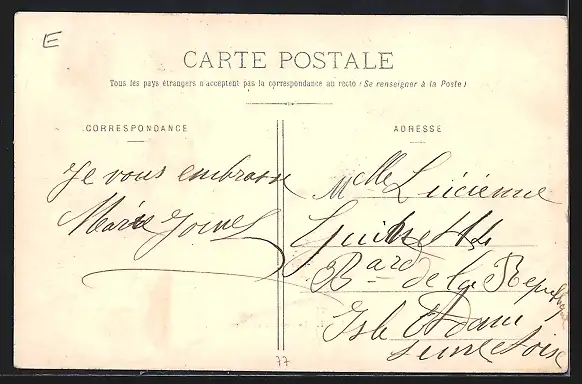 E
CARTE POSTALE
Tous les pays étrangers n'acceptent pas la correspondance au recto (Se renseigner à la Poste)
CORRESPONDANCE
Je vous embrasse
Marie
ADRESSE
Melle Lucienne
Bard de la Republique
Isle Adam
Seine et Oise
77